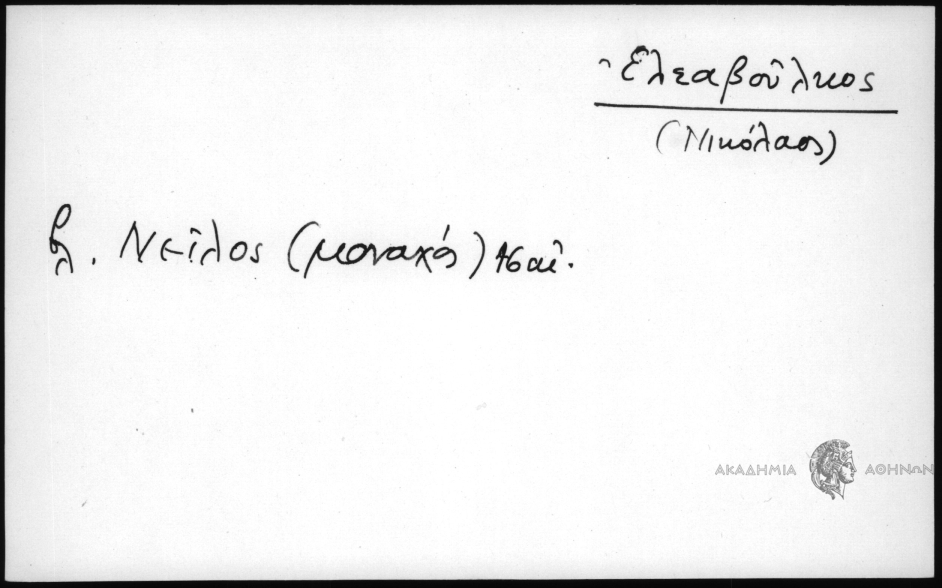 Ἐλεαβοῦλκος
(Νικόλαος)
βλ. Νεῖλος (μοναχός) 16 αἰ.
ΑΚΑΔΗΜΙΑ ΑΘΗΝΩΝ